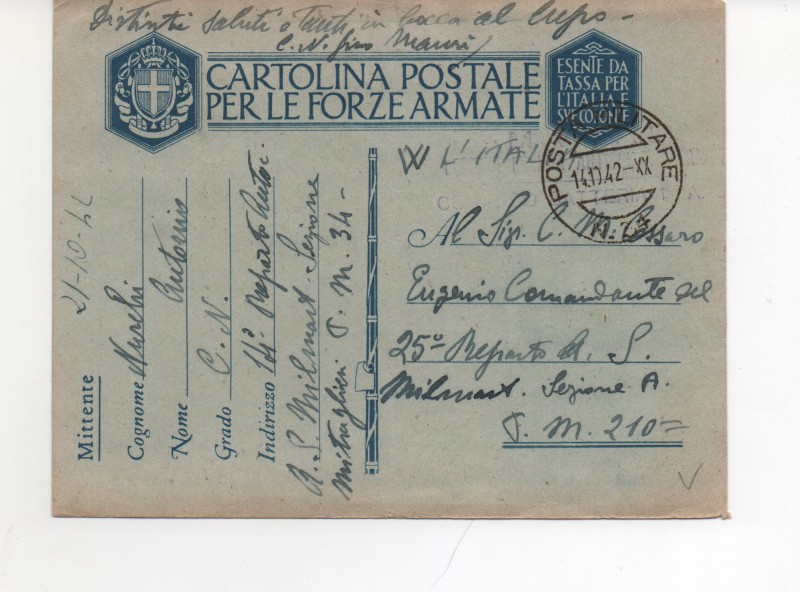 Distinti saluti e tanti in bocca al lupo -
C. N. Gino Mauri
CARTOLINA POSTALE
PER LE FORZE ARMATE
ESENTE DA
TASSA PER
L'ITALIA E
SUE COLONIE
W L'ITALIA
POSTA MILITARE
N. 34
Al Sig. C. M.
Eugenio Comandante del
25º Reparto A. S.
Milmart. Sezione A.
P. M. 210=
21-10-42
Mittente
Cognome Aureli
Nome Antonio
Grado C. N.
Indirizzo 14º Reparto Autoc.
A. S. Milmart. Sezione
Mitraglieri P. M. 34-